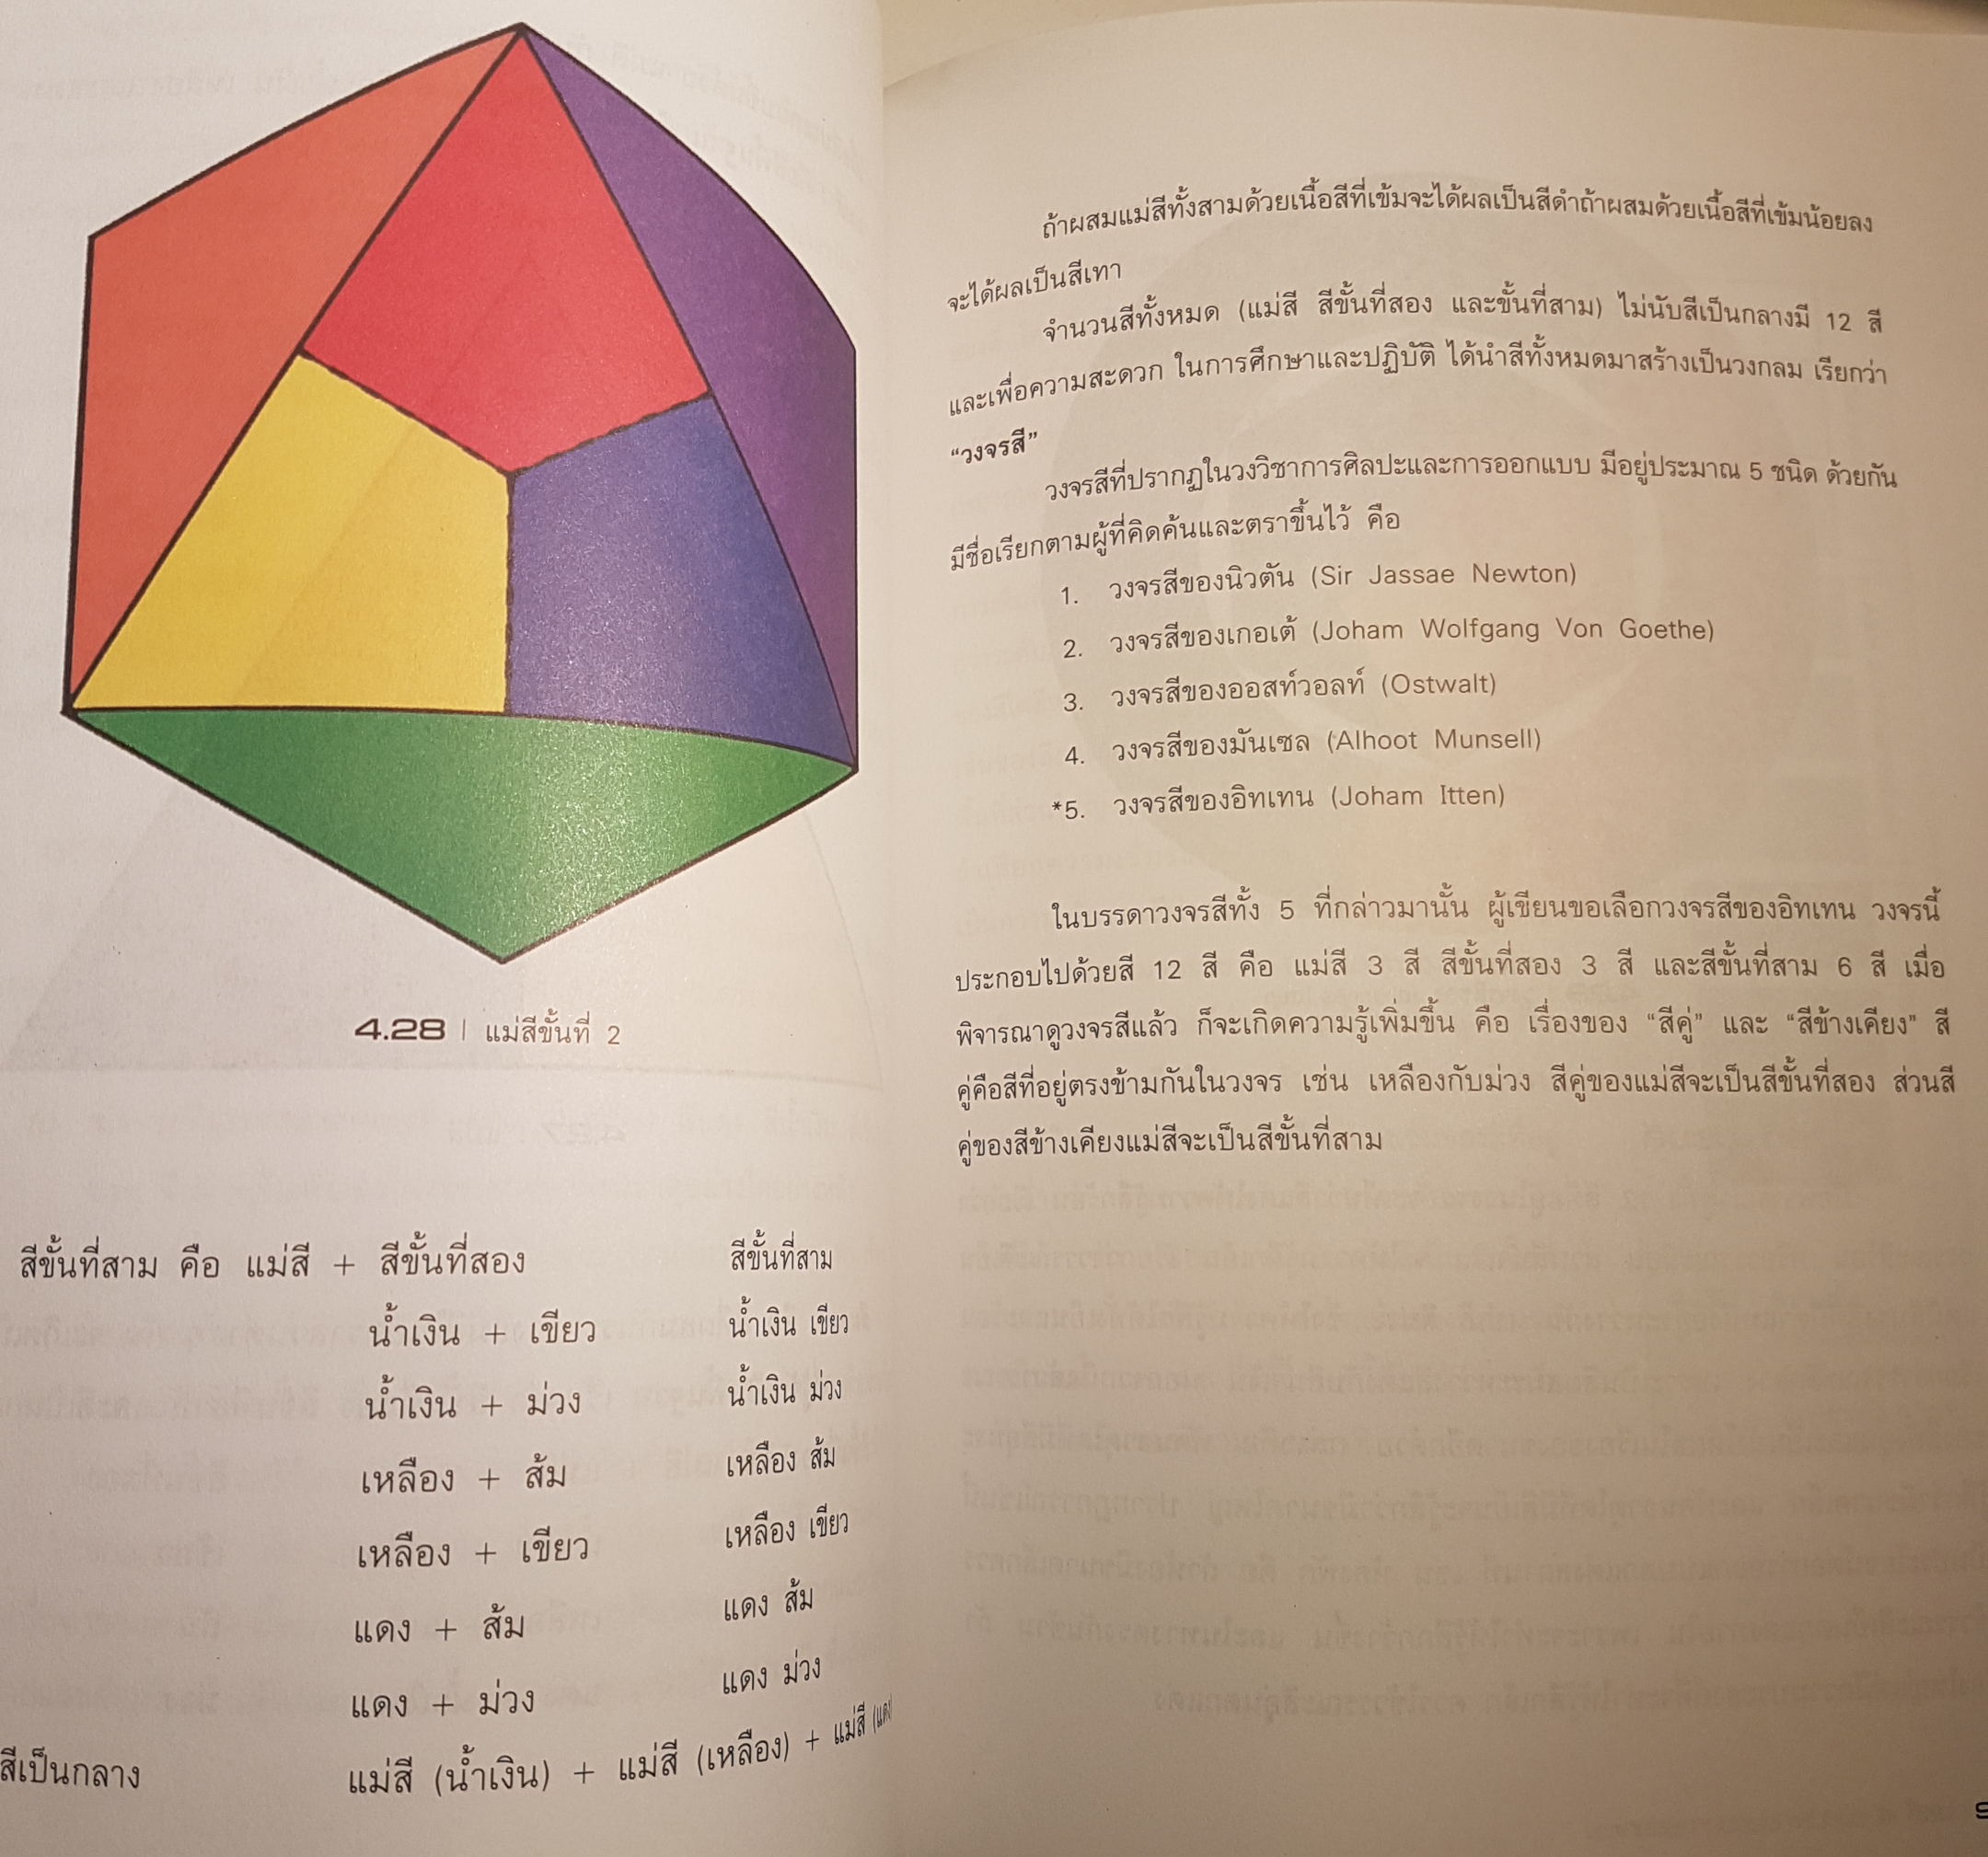 4.28 | แม่สีขั้นที่ 2
สีขั้นที่สาม คือ แม่สี + สีขั้นที่สอง สีขั้นที่สาม
น้ำเงิน + เขียว น้ำเงิน เขียว
น้ำเงิน + ม่วง น้ำเงิน ม่วง
เหลือง + ส้ม เหลือง ส้ม
เหลือง + เขียว เหลือง เขียว
แดง + ส้ม แดง ส้ม
แดง + ม่วง แดง ม่วง
สีเป็นกลาง แม่สี (น้ำเงิน) + แม่สี (เหลือง) + แม่สี (แดง)
ถ้าผสมแม่สีทั้งสามด้วยเนื้อสีที่เข้มจะได้ผลเป็นสีดำถ้าผสมด้วยเนื้อสีที่เข้มน้อยลง
จะได้ผลเป็นสีเทา
จำนวนสีทั้งหมด (แม่สี สีขั้นที่สอง และขั้นที่สาม) ไม่นับสีเป็นกลางมี 12 สี
และเพื่อความสะดวก ในการศึกษาและปฏิบัติ ได้นำสีทั้งหมดมาสร้างเป็นวงกลม เรียกว่า
“วงจรสี”
วงจรสีที่ปรากฏในวงวิชาการศิลปะและการออกแบบ มีอยู่ประมาณ 5 ชนิด ด้วยกัน
มีชื่อเรียกตามผู้ที่คิดค้นและตราขึ้นไว้ คือ
1. วงจรสีของนิวตัน (Sir Jassae Newton)
2. วงจรสีของเกอเต้ (Joham Wolfgang Von Goethe)
3. วงจรสีของออสท์วอลท์ (Ostwalt)
4. วงจรสีของมันเซล (Alhoot Munsell)
*5. วงจรสีของอิทเทน (Joham Itten)
ในบรรดาวงจรสีทั้ง 5 ที่กล่าวมานั้น ผู้เขียนขอเลือกวงจรสีของอิทเทน วงจรนี้
ประกอบไปด้วยสี 12 สี คือ แม่สี 3 สี สีขั้นที่สอง 3 สี และสีขั้นที่สาม 6 สี เมื่อ
พิจารณาดูวงจรสีแล้ว ก็จะเกิดความรู้เพิ่มขึ้น คือ เรื่องของ “สีคู่” และ “สีข้างเคียง” สี
คู่คือสีที่อยู่ตรงข้ามกันในวงจร เช่น เหลืองกับม่วง สีคู่ของแม่สีจะเป็นสีขั้นที่สอง ส่วนสี
คู่ของสีข้างเคียงแม่สีจะเป็นสีขั้นที่สาม